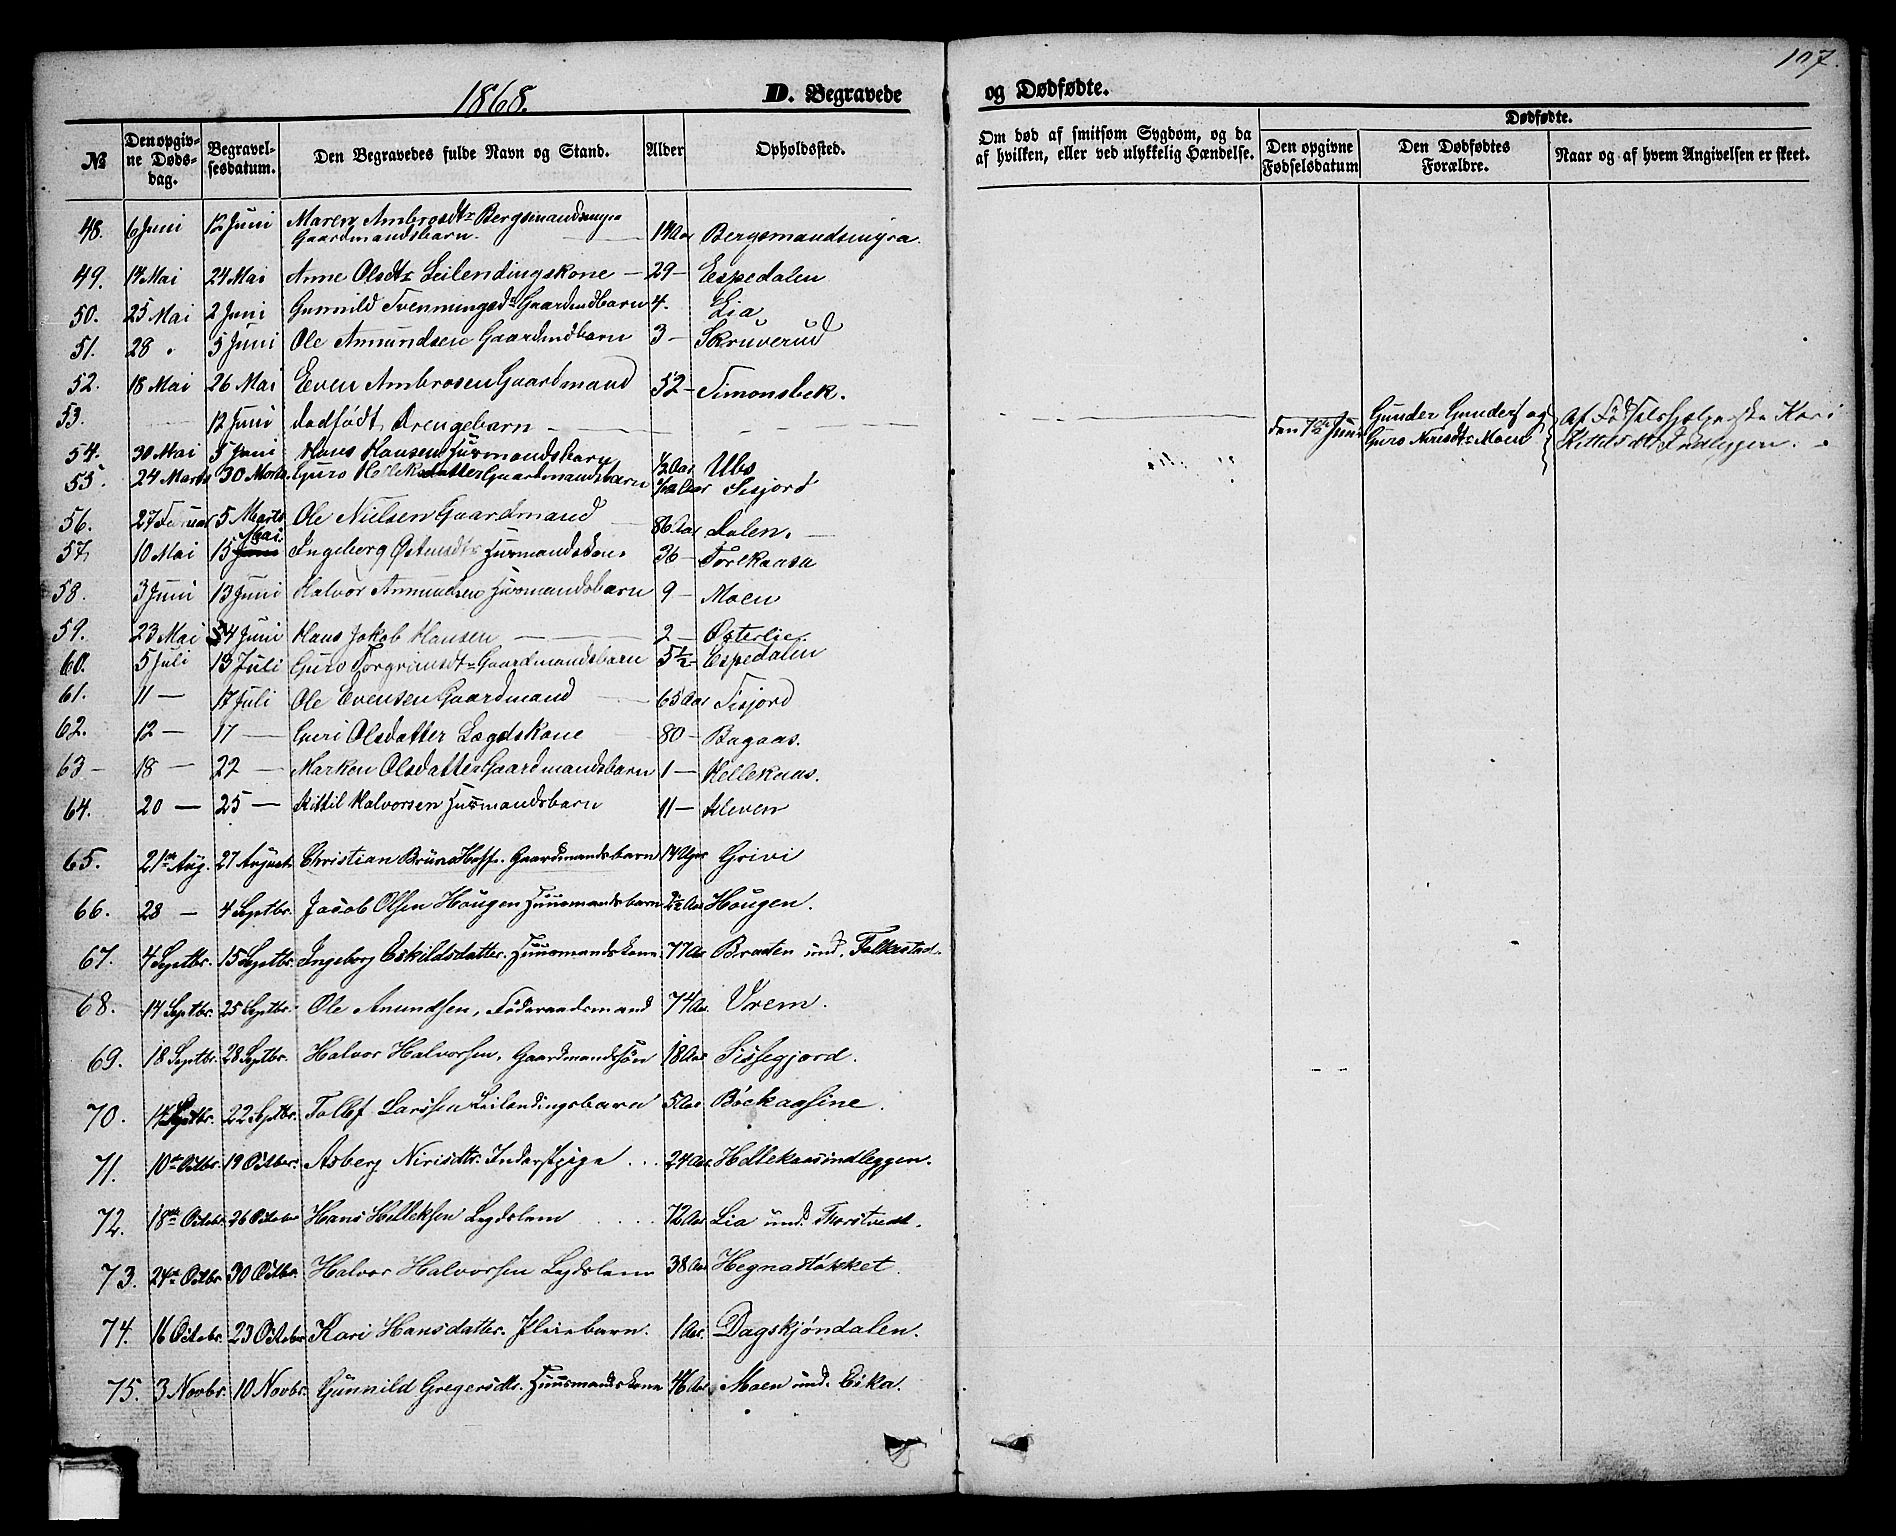 107.
1868. D. Begravede og Dødfødte.
№
Den opgivne Dødsdag.
Begravelsesdatum.
Den Begravedes fulde Navn og Stand.
Alder
Opholdssted.
Om død af smitsom Sygdom, og da af hvilken, eller ved ulykkelig Hændelse.
Dødfødte.
Den opgivne Fødselsdatum
Den Dødfødtes Forældre.
Naar og af hvem Angivelsen er skeet.
48. 6 Juni 12 Juni Maren Ambrosdtr Bergsmandsmyra
Gaardmandsbarn. 14 Aar Bergsmandsmyra.
49. 14 Mai 24 Mai Anne Olsdtr Leilendingskone — 29 — Espedalen
50. 25 Mai 2 Juni Gunnild Tvenningsdr Gaardmdbarn 4. Lia
51. 28 " 5 Juni Ole Amundsen Gaardmdbarn 3 — Skruverud
52. 18 Mai 26 Mai Even Ambrosen Gaardmand 52 — Simonsbek.
53. — 12 Juni dødfødt Drengebarn — — — den 7de Juni Gunder Gunders og Af Fødselshjelperske Kari
Guro Nirisdtr Moen Kittelsdtr Indleggen.
54. 30 Mai 5 Juni Hans Hansen Husmandsbarn ½ Aar Ubs
55. 24 Marts 30 Marts Guro Helleksdatter Gaardmandsbarn Aar Sisjord
56. 27 Februar 5 Marts Ole Nielsen Gaardmand 86 Aar Dalen.
57. 10 Mai 15 Mai Ingeborg Østensdtr Husmandskone 36 — Torekaasa
58. 3 Juni 13 Juni Halvor Amundsen Husmandsbarn 9 — Moen
59. 23 Mai 4 Juni Hans Jakob Hansen — — 2 — Østerlie
60. 5 Juli 13 Juli Guro Torgrimsdtr Gaardmandsbarn 5½ — Espedalen
61. 11 — 17 Juli Ole Evensen Gaardmand 65 Aar Sisjord
62. 12 — 17 — Guri Olsdatter Lægdskone 80 — Bagaas.
63 — 18 — 22 — Marken Olsdatter Gaardmandsbarn 1 — Hellekaas.
64. 20 — 25 — Kittil Halvorsen Husmandsbarn 11 — Kleven
65. 21de Aug. 27 August Christian Bruno Gaardmandsbarn 14 Uger Grivi
66. 28 — 4 Septbr. Jacob Olsen Hougen Huusmandsbarn 2½ Aar Hougen.
67. 4 Septbr. 15 Septbr. Ingeborg Eskildsdatter. Huusmandskone 77 Aar Braaten und. Folkestad.
68. 14 Septbr. 25 Septbr. Ole Amundsen, Föderaadsmand 74 Aar. Vrem.
69. 18 Septbr. 28 Septbr. Halvor Halvorsen, Gaardmandssön 18 Aar. Sissegjord.
70. 14 Septbr. 22 Septbr. Tollef Larssen Leilendingsbarn 5 Aar Böckaasine.
71. 10de Octbr. 19 Octbr. Asberg Nirisdtr. Inderstpige 24 Aar. Hellekaasindleggen.
72. 18de Octobr. 26 October Hans Helleksen Legdslem 72 Aar Lia und. Torstvedt.
73. 24de Octbr 30 Octbr. Halvor Halvorsen Legdslem 38 Aar Hegnastökket.
74. 16 Octobr. 23 October Kari Hansdatter. Pleiebarn. 1 Aar. Dagskjöndalen.
75. 3 Novbr. 10 Novbr. Gunnild Gregersdtr. Huusmandskone 46 Aar. Moen und. Eika.